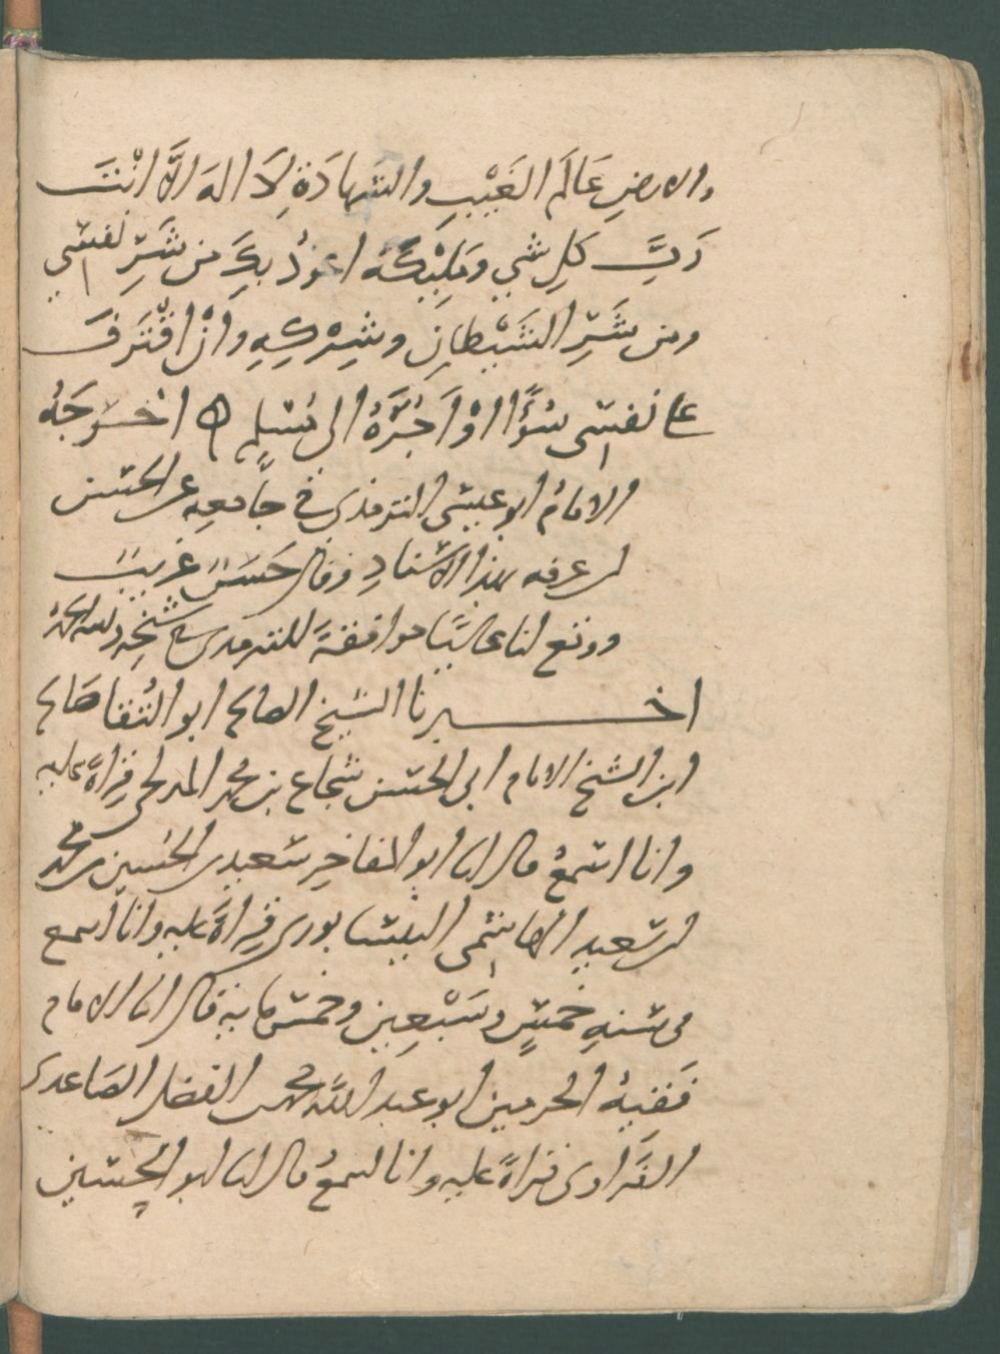 والارضِ عَالَم الغَيْبِ والشهادَة لَا اله الَّا انْتَ
رَبَّ كلِ شي ومَلِيْكَهُ اعوذُ بِكَ من شَرِّ نفسي
ومن شَرِّ الشَّيْطانِ وشِرْكِهِ وانْ اقْتَرَفَ
على نفسي سُوْءًا اوْ اَجُرَّهُ الى مُسْلمٍ ه اخْرَجَهُ
الامامُ ابو عيسى الترمذي في جَامعِه عن الحسن
بن عرفه بهذا الاسْنادِ وقال حَسَنٌ غريبٌ
ووقع لنا عاليًا موافقةً للترمذي في شيخه ولله الحمدُ
اخبرنا الشيخ الصالح ابو التُقا صَالح
ابن الشيخ الامام ابى الحسن شجاع بن محمد المدلجى قِراةً عليه
وانا اسْمعُ قال انا ابو المفاخرِ سَعيد بن الحُسين بن محمد
بن سَعيدٍ الهاشمى النيسابورى قِراةً عليه وانا اسمع
فى سَنهِ خمسٍ وسَبْعِين وخمس مايةٍ قال انا الامام
فَقيهُ الحرمين ابو عبد اللّه محمد بن الفضل الصاعدي
الفَراوى قراةً عليه وانا اسمعُ قال انا ابو الحسين